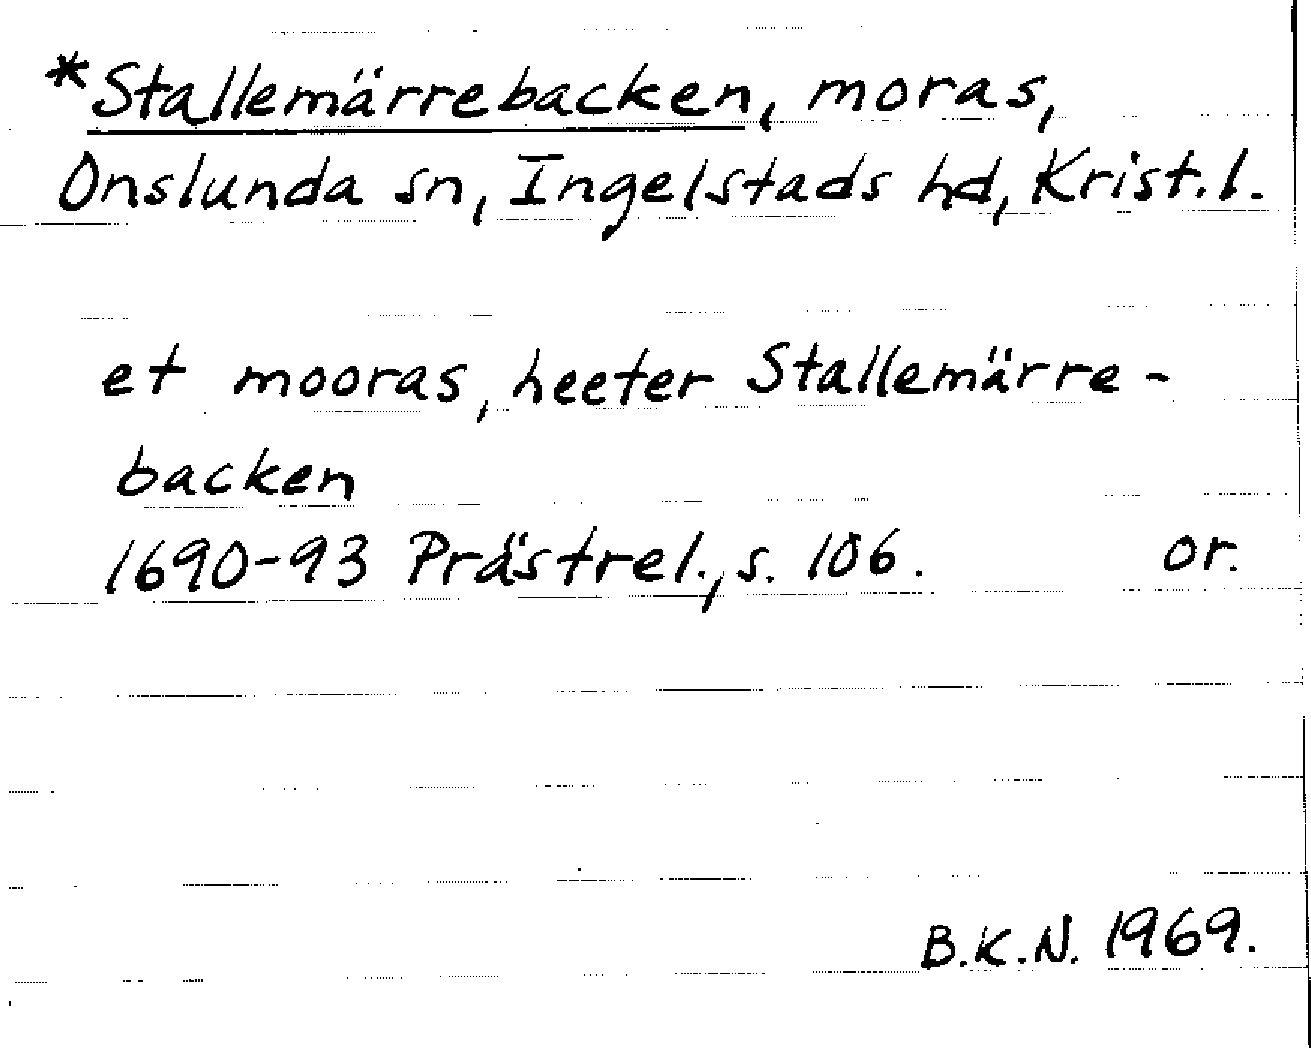 *Stallemärrebacken, moras,
Onslunda sn, Ingelstads hd, Krist.l.
et mooras, heeter Stallemärre-
backen
1690-93 Prästrel., s. 106. or.
B.K.N. 1969.